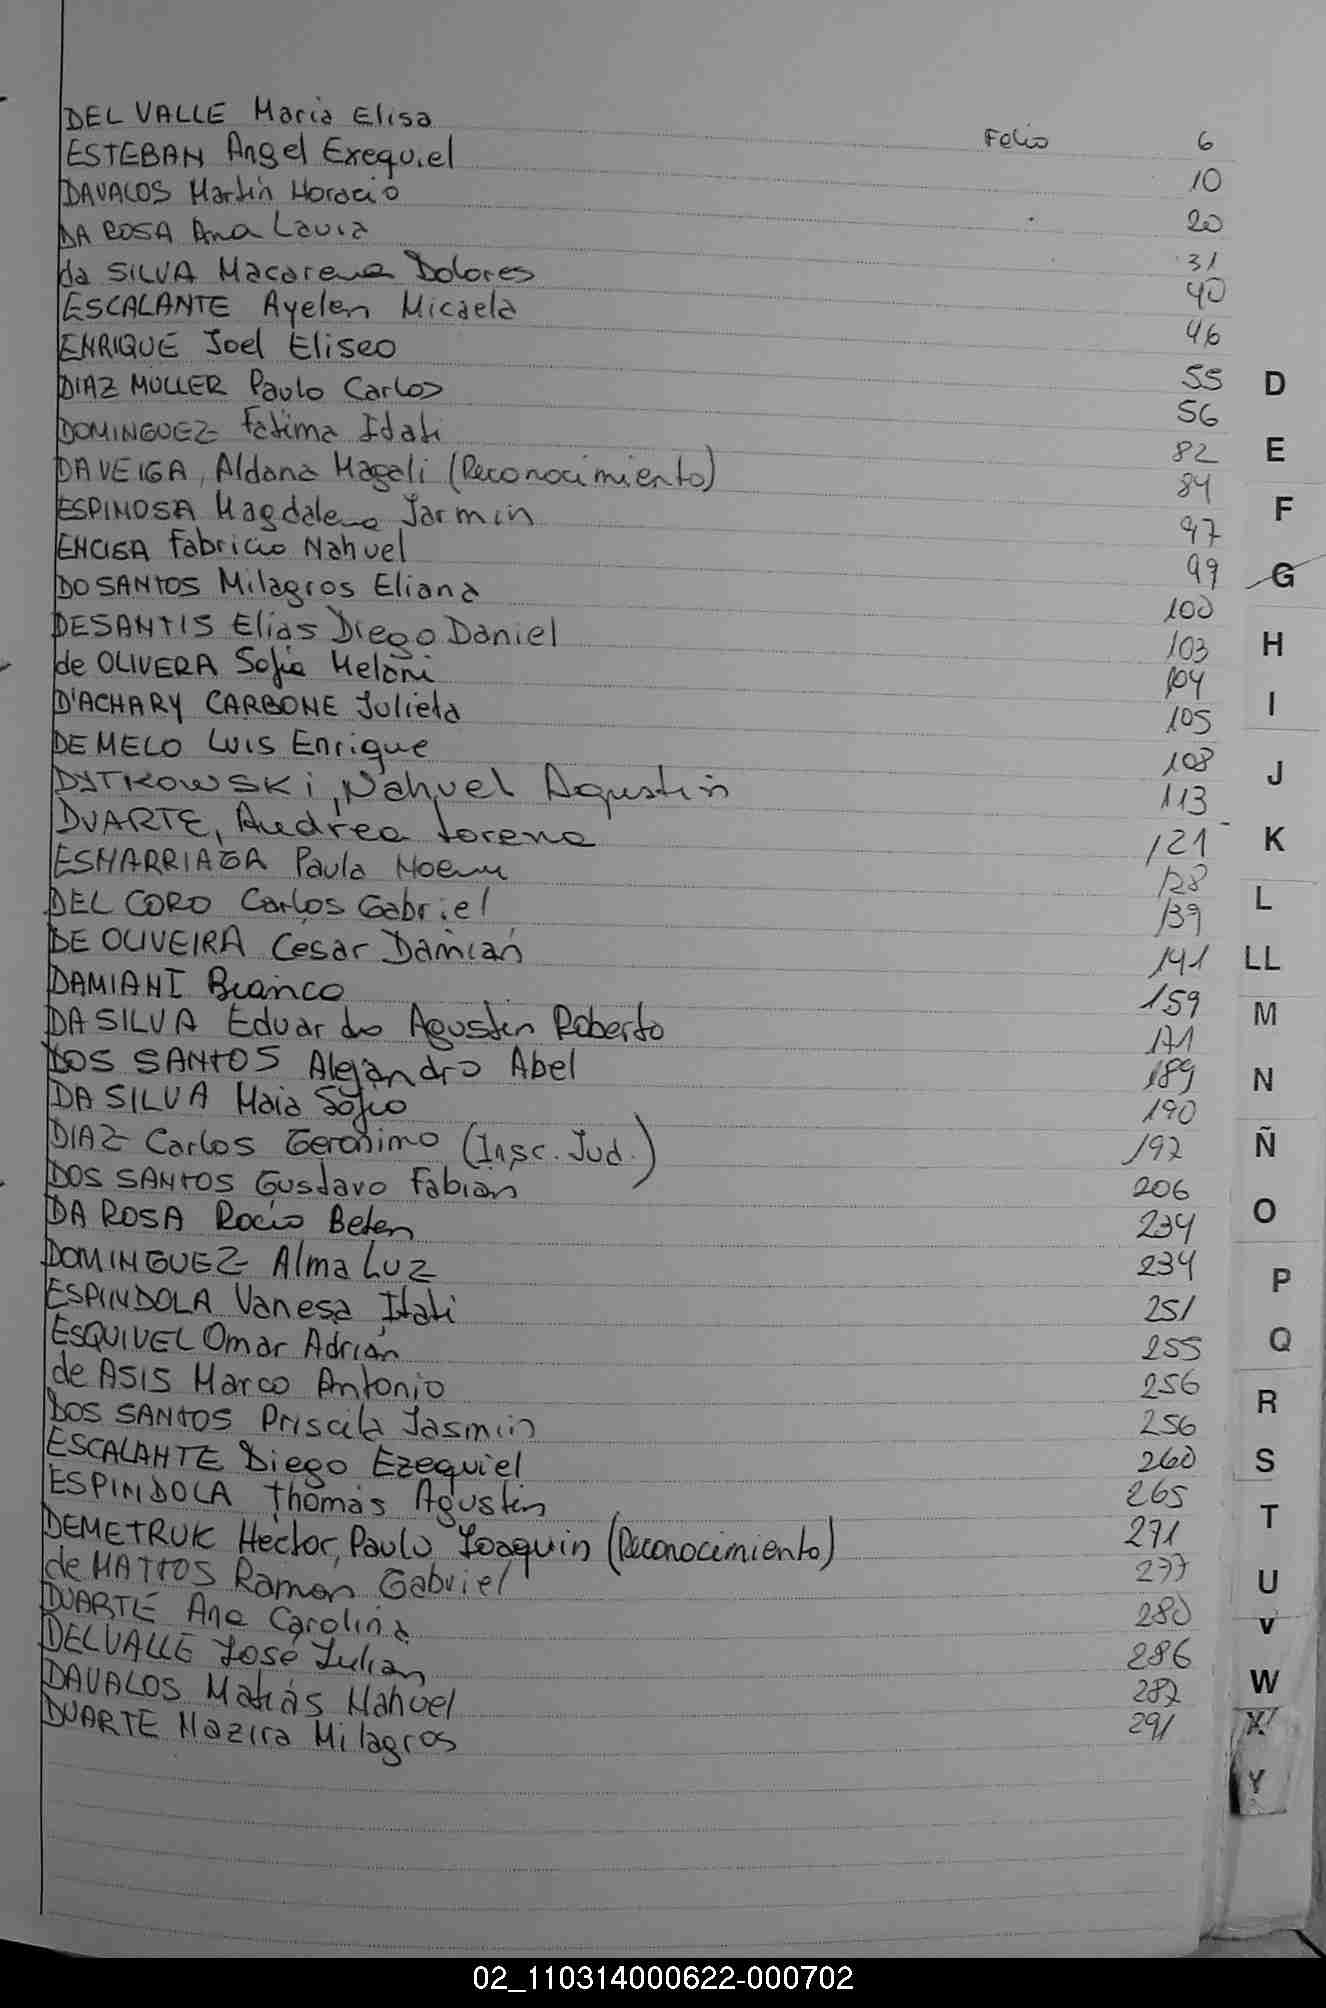 DEL VALLE Maria Elisa Folio 6
ESTEBAN Angel Exequiel 10
DAVALOS Martín Horacio 20
DA ROSA Ana Laura 31
da SILVA Macarena Dolores 40
ESCALANTE Ayelen Micaela 46
ENRIQUE Joel Eliseo 55
DIAZ MULLER Paulo Carlos 56
DOMINGUEZ Fatima Itati 82
DA VEIGA, Aldana Magali (Reconocimiento) 84
ESPINOSA Magdalena Jarmin 97
ENCISA Fabricio Nahuel 99
DO SANTOS Milagros Eliana 100
DESANTIS Elias Diego Daniel 103
de OLIVERA Sofia 104
D'ACHARY CARBONE Julieta 105
DE MELO Luis Enrique 108
DYTKOWSKI, Nahuel Agustin 113
DUARTE, Andrea Lorena 121
Paula Noemi 128
DEL CORO Carlos Gabriel 139
DE OLIVEIRA César Damián 141
DAMIANI Bianca 159
DA SILVA Eduardo Agustin Roberto 171
DOS SANTOS Alejandro Abel 189
DA SILVA Maia Sofia 190
DIAZ Carlos Gerónimo (Insc. Jud.) 197
DOS SANTOS Gustavo Fabian 206
DA ROSA Rocio Belen 234
DOMINGUEZ Alma Luz 234
ESPINDOLA Vanesa Itati 251
ESQUIVEL Omar Adrián 255
de ASIS Marco Antonio 256
DOS SANTOS Priscila Jasmin 256
ESCALANTE Diego Ezequiel 260
ESPINDOLA Thomás Agustin 265
DEMETRUK Hector, Paulo Joaquin (Reconocimiento) 271
de MATTOS Ramon Gabriel 277
DUARTE Ana Carolina 280
DELVALLE José Julian 286
DAVALOS Matías Nahuel 287
DUARTE Nazira Milagros 291
D
E
F
G
H
I
J
K
L
LL
M
N
Ñ
O
P
Q
R
S
T
U
V
W
X
Y
02_110314000622-000702